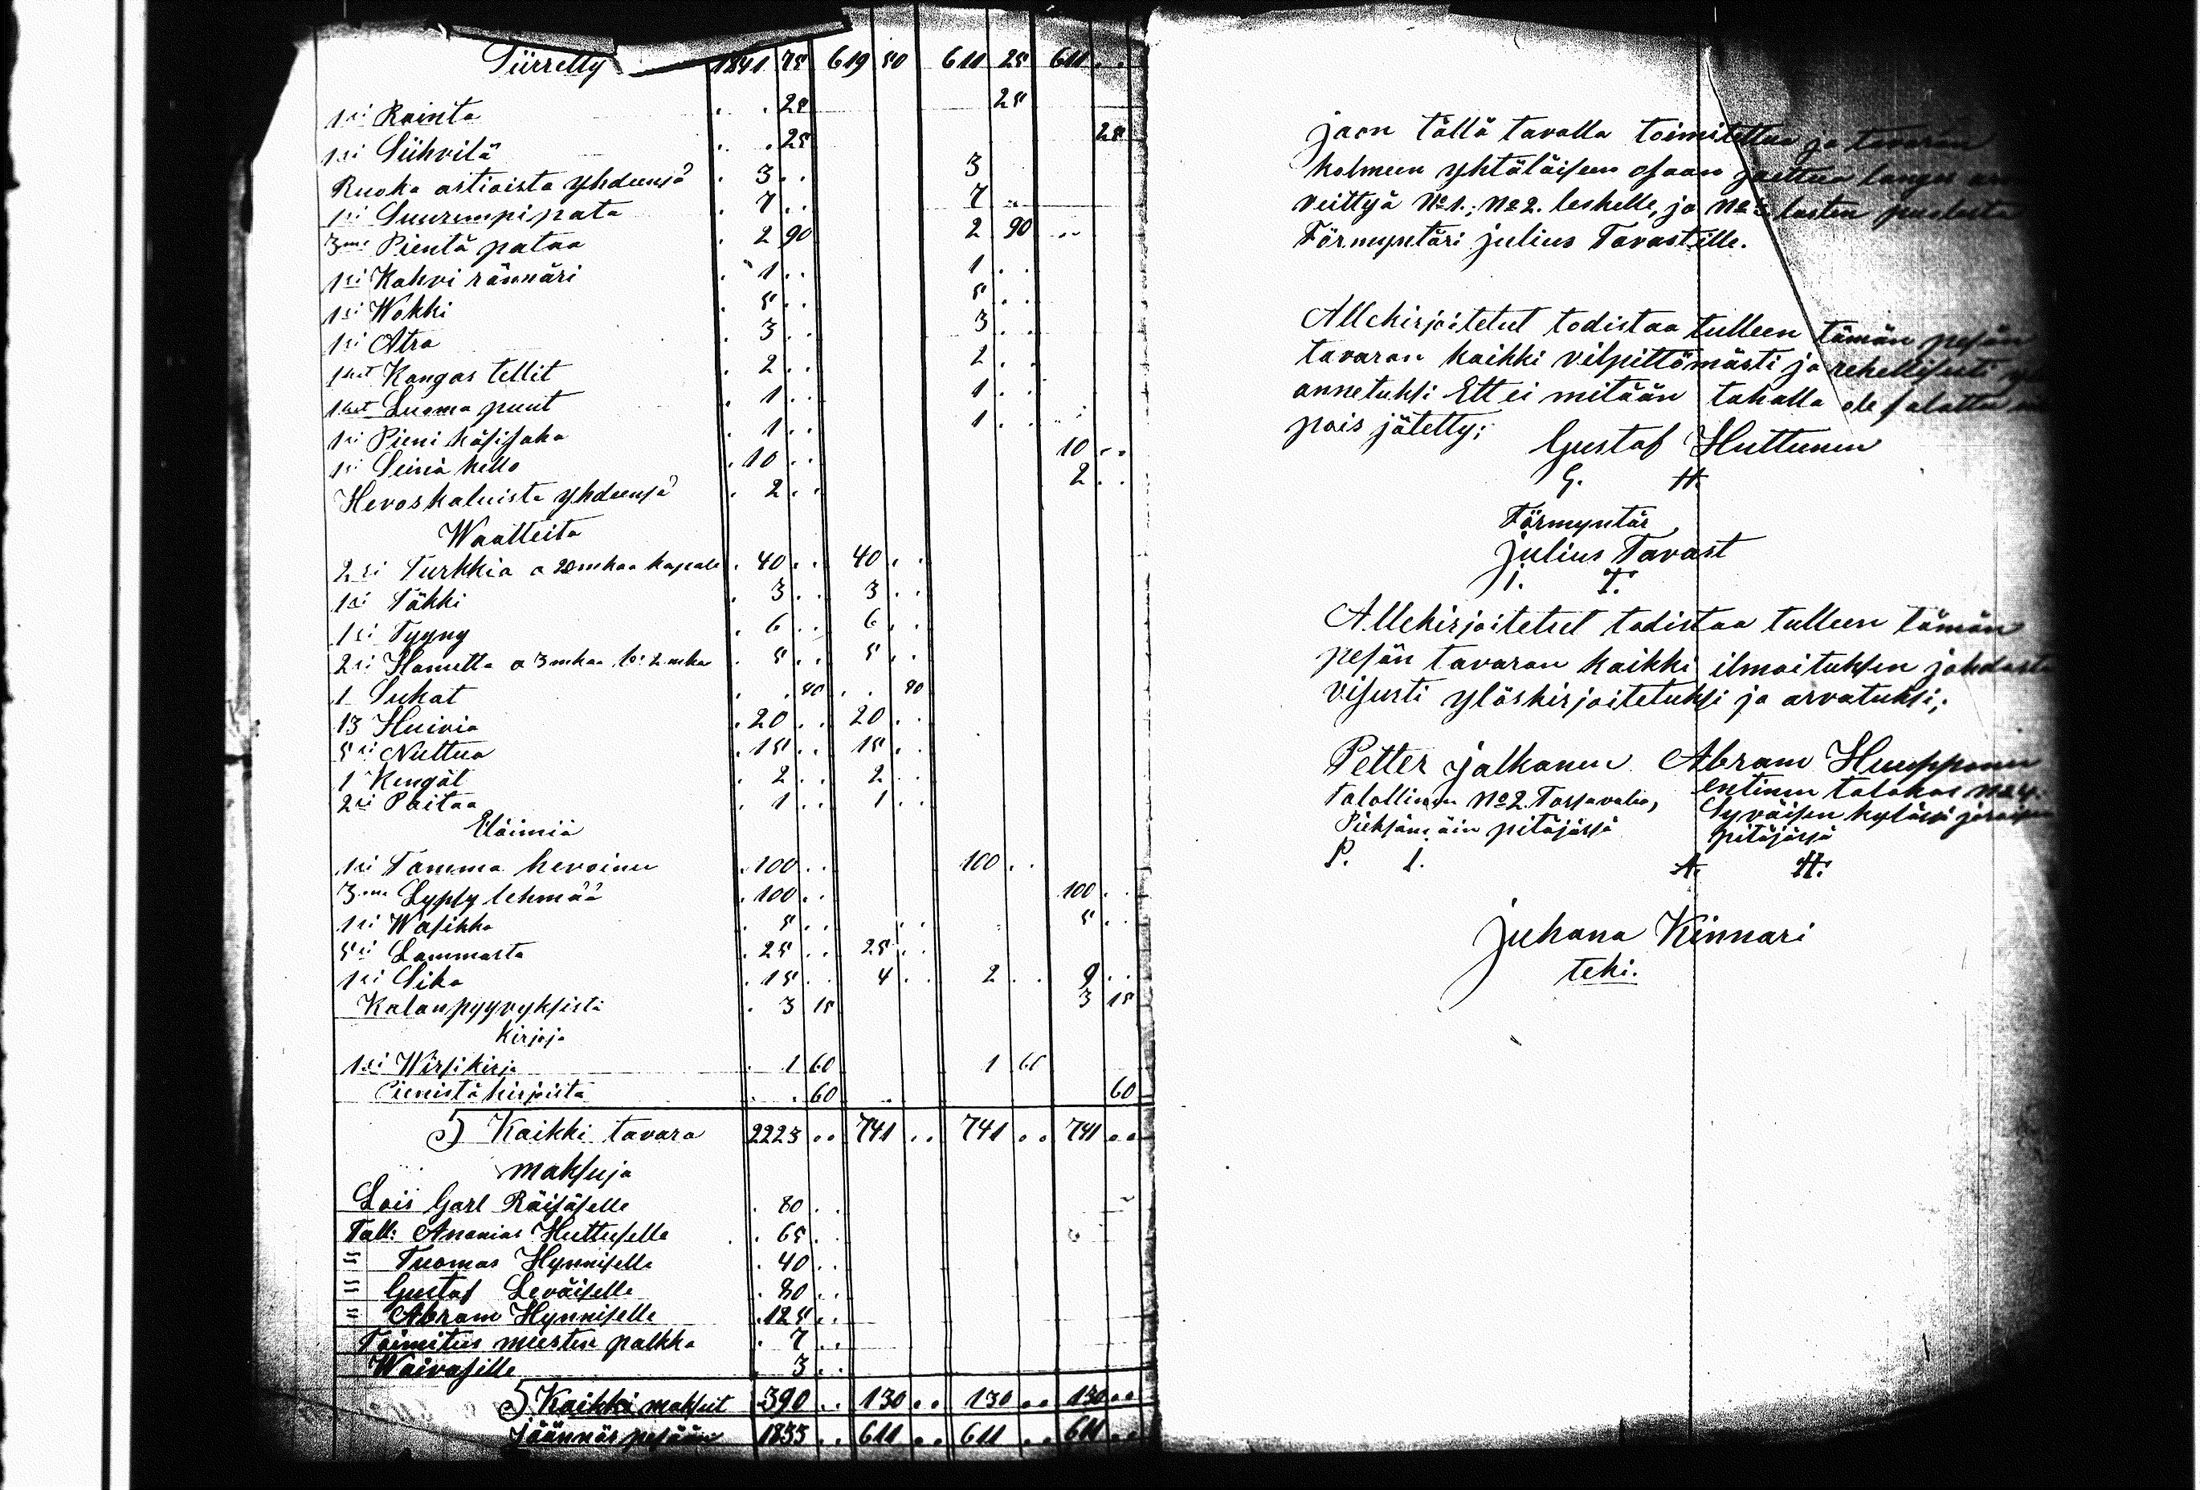 Siirretty 1841 75 619 50 611 25 611 . .
1si Rainta . . 25 25
1si Siihvilä . . 25 25
Ruoka astioista yhdeensä . 3 . . 3
1si Suurempi pata . 7 . . 7 . .
3me Pientä pataa . 2 90 2 90
1si Kahvi rännäri . 1 . . 1 . .
1si Wokki . 5 . . 5 . .
1si Atra . 3 . . 3 . .
1set Kangas tellit . 2 . . 2 . .
1set Luoma puut . 1 . . 1 . .
1si Pieni käsisaha . 1 . . 1 . .
1si Seinä kello . 10 . . 10 . .
Hevoskaluista yhdeensä . 2 . . 2 . .
Waatteita
2si Turkkia a 20 mkaa kapale . 40 . . 40 . .
1si Täkki . 3 . . 3 . .
1si Tyyny . 6 . . 6 . .
2si Hametta a 3 mkaa 2 mka . 5 . . 5 . .
1 Sukat . . 80 . . 80
13 Huivia . 20 . . 20 . .
5si Nuttua . 15 . . 15 . .
1 Kengät . 2 . . 2 . .
2si Paitaa . 1 . . 1 . .
Eläimiä
1si Tamma hevoinen . 100 . . 100 . .
3me Lypsy lehmää . 100 . . 100 . .
1si Wasikka . 5 . . 5 . .
5si Lammasta . 25 . . 25 . .
1si Sika . 15 . . 4 . . 2 . . 9 . .
Kalanpyyvyksistä . 3 15 3 15
Kirjoja
1si Wirsikirja . 1 60 1 60
Pienistä kirjoista . . 60 60
S Kaikki tavara 2223 . . 741 . . 741 . . 741 . .
maksuja
Lois Carl Räisäselle . 80 . .
Tall: Ananias Huttuselle . 65 . .
= Tuomas Hynniselle . 40 . .
= Gustaf Leväiselle
= Abram Hynniselle . 125 . .
Toimitus miesten palkka . 7 . .
Waivasille . 3 . .
S Kaikki maksut 390 . . 130 . . 130 . . 130 . .
Jäännös pesään 1833 . . 611 . . 611 . . 611 . .
jaon tällä tavalla toimitettua ja tavaran
kolmeen yhtäläiseen osaan jaettua
veittyä No 1., No 2. leskelle, ja No 3 lasten puolesta
Förmyntäri Julius Tavastille.
Allekirjoitetut todistaa tulleen tämän pesän
tavaran kaikki vilpittömästi ja rehellisesti
annetuksi Ett ei mitään tahalla ole salattu
pois jätetty;
Gustaf Huttunen
G. H.
Förmyntär
Julius Tavast
J. T.
Allekirjoitetut todistaa tulleen tämän
pesän tavaran kaikki ilmoituksen johdosta
visusti ylöskirjoitetuksi ja arvatuksi;
Petter Jalkanen Abram Huupponen
talollinen No 2. entinen talokas
Pieksämäin pitäjässä Syväisen kylässä
pitäjässä
P. J. A. H.
Juhana Kinnari
teki.